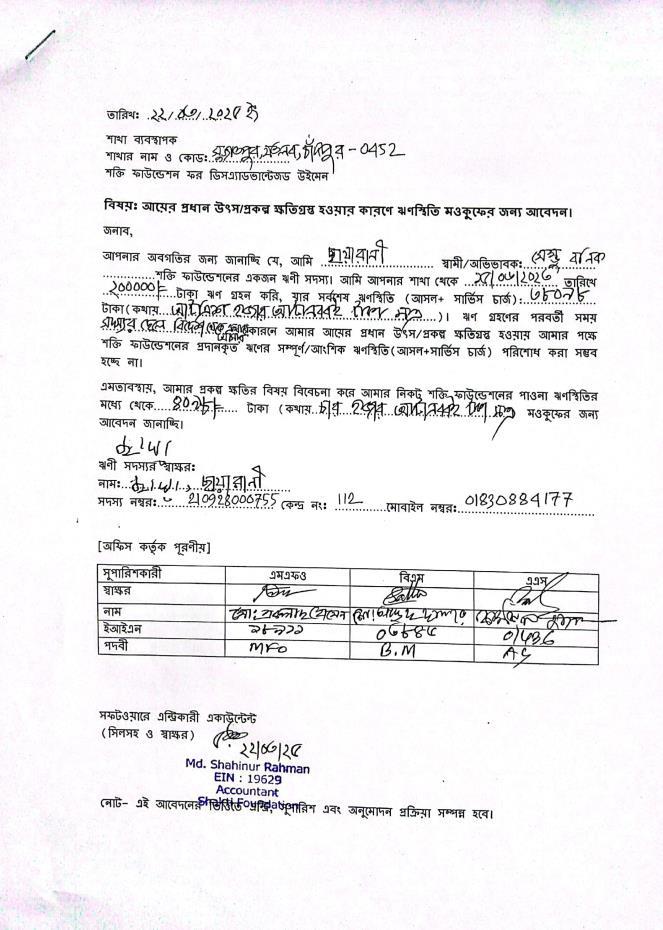 তারিখ: ২২/০৬/২০২৫ ইং
শাখা ব্যবস্থাপক
শাখার নাম ও কোড: চাঁদপুর - 0452
শক্তি ফাউন্ডেশন ফর ডিসএ্যাডভান্টেজড উইমেন
বিষয়: আয়ের প্রধান উৎস/প্রকল্প ক্ষতিগ্রস্থ হওয়ার কারণে ঋণস্থিতি মওকুফের জন্য আবেদন।
জনাব,
আপনার অবগতির জন্য জানাচ্ছি যে, আমি ছায়া রানী স্বামী/অভিভাবক: বনিক
শক্তি ফাউন্ডেশনের একজন ঋণী সদস্য। আমি আপনার শাখা থেকে তারিখে
200000/= টাকা ঋণ গ্রহন করি, যার সর্বশেষ ঋণস্থিতি (আসল+ সার্ভিস চার্জ)
টাকা (কথায় হাজার মাত্র)। ঋণ গ্রহণের পরবর্তী সময়
কারনে আমার আয়ের প্রধান উৎস/প্রকল্প ক্ষতিগ্রস্থ হওয়ায় আমার পক্ষে
শক্তি ফাউন্ডেশনের প্রদানকৃত ঋণের সম্পূর্ণ/আংশিক ঋণস্থিতি(আসল+সার্ভিস চার্জ) পরিশোধ করা সম্ভব
হচ্ছে না।
এমতাবস্থায়, আমার প্রকল্প ক্ষতির বিষয় বিবেচনা করে আমার নিকট শক্তি ফাউন্ডেশনের পাওনা ঋণস্থিতির
মধ্যে থেকে টাকা (কথায় চার হাজার মাত্র মওকুফের জন্য
আবেদন জানাচ্ছি।
ঋণী সদস্যর স্বাক্ষর:
নাম: ছায়া রানী
সদস্য নম্বর: 210928000755 কেন্দ্র নং: 112 মোবাইল নম্বর: 01830884177
[অফিস কর্তৃক পূরণীয়]
সুপারিশকারী এমএফও বিএম এএস
স্বাক্ষর
নাম
ইআইএন
পদবী MFO B.M AS
সফটওয়ারে এন্ট্রিকারী একাউন্টেন্ট
(সিলসহ ও স্বাক্ষর)
২২/০৬/২৫
Md. Shahinur Rahman
EIN : 19629
Accountant
Shakti Foundation
নোট- এই আবেদনের ভিত্তিতে এন্ট্রি, সুপারিশ এবং অনুমোদন প্রক্রিয়া সম্পন্ন হবে।